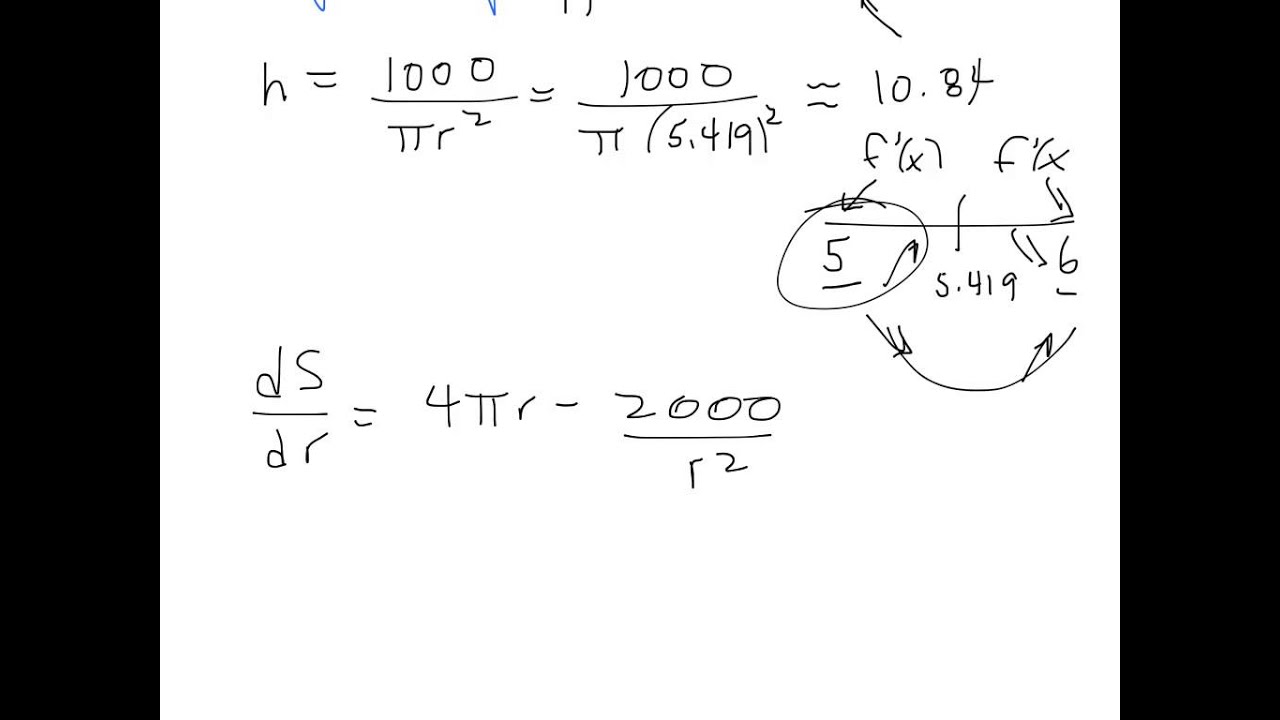 h = 1000/πr² = 1000/π(5.419)² ≈ 10.84
f'(x) f'(x
5 5.419 6
dS/dr = 4πr - 2000/r²